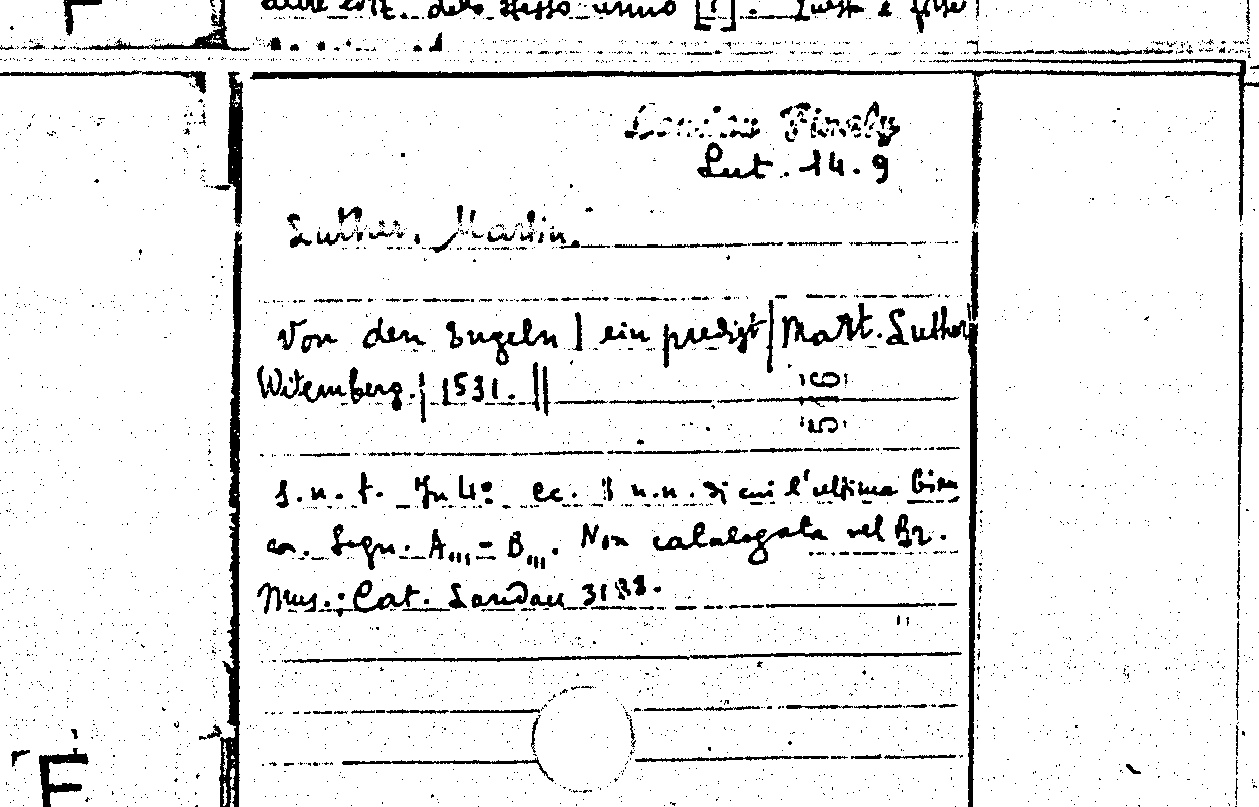 altre ediz. dello stesso anno [?]. Questa è forse
Landau Finaly
Lut. 14.9
Luther, Martin.
Von den Engeln | ein predigt | Mart. Luther
Witemberg. | 1531. ||
s.n.t. In 4º cc. 8 n.n. di cui l'ultima bian
ca. Segn. A,,, - B,,,. Non catalogata nel Br.
Mus.; Cat. Landau 3188.
F